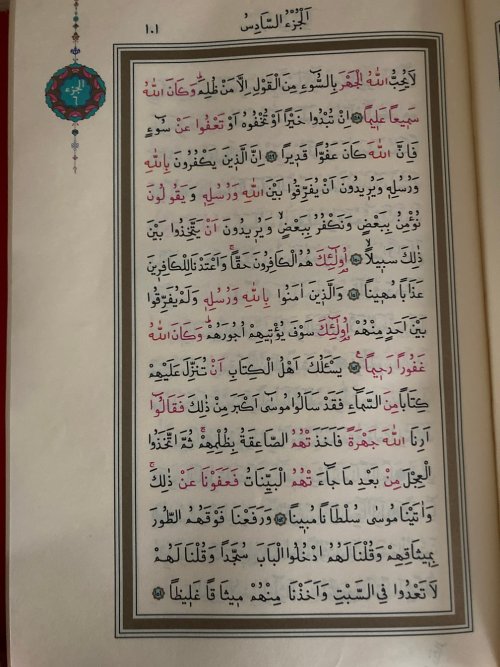 ١٠١
اَلْجُزْءُ السَّادِسُ
الجزء
٦
لَا يُحِبُّ اللّٰهُ الْجَهْرَ بِالسُّوٓءِ مِنَ الْقَوْلِ اِلَّا مَنْ ظُلِمَۜ وَكَانَ اللّٰهُ
سَمٖيعاً عَلٖيماً ﴿١٤٨﴾ اِنْ تُبْدُوا خَيْراً اَوْ تُخْفُوهُ اَوْ تَعْفُوا عَنْ سُوٓءٍ
فَاِنَّ اللّٰهَ كَانَ عَفُواًّ قَدٖيراً ﴿١٤٩﴾ اِنَّ الَّذٖينَ يَكْفُرُونَ بِاللّٰهِ
وَرُسُلِهٖ وَيُرٖيدُونَ اَنْ يُفَرِّقُوا بَيْنَ اللّٰهِ وَرُسُلِهٖ وَيَقُولُونَ
نُؤْمِنُ بِبَعْضٍ وَنَكْفُرُ بِبَعْضٍۙ وَيُرٖيدُونَ اَنْ يَتَّخِذُوا بَيْنَ
ذٰلِكَ سَبٖيلاًۙ ﴿١٥٠﴾ اُو۬لٰٓئِكَ هُمُ الْكَافِرُونَ حَقاًّۚ وَاَعْتَدْنَا لِلْكَافِرٖينَ
عَذَاباً مُهٖيناً ﴿١٥١﴾ وَالَّذٖينَ اٰمَنُوا بِاللّٰهِ وَرُسُلِهٖ وَلَمْ يُفَرِّقُوا
بَيْنَ اَحَدٍ مِنْهُمْ اُو۬لٰٓئِكَ سَوْفَ يُؤْتٖيهِمْ اُجُورَهُمْۜ وَكَانَ اللّٰهُ
غَفُوراً رَحٖيماًۚ ﴿١٥٢﴾ يَسْـَٔلُكَ اَهْلُ الْكِتَابِ اَنْ تُنَزِّلَ عَلَيْهِمْ
كِتَاباً مِنَ السَّمَٓاءِ فَقَدْ سَاَلُوا مُوسٰٓى اَكْبَرَ مِنْ ذٰلِكَ فَقَالُٓوا
اَرِنَا اللّٰهَ جَهْرَةً فَاَخَذَتْهُمُ الصَّاعِقَةُ بِظُلْمِهِمْۚ ثُمَّ اتَّخَذُوا
الْعِجْلَ مِنْ بَعْدِ مَا جَٓاءَتْهُمُ الْبَيِّنَاتُ فَعَفَوْنَا عَنْ ذٰلِكَۚ
وَاٰتَيْنَا مُوسٰى سُلْطَاناً مُبٖيناً ﴿١٥٣﴾ وَرَفَعْنَا فَوْقَهُمُ الطُّورَ
بِمٖيثَاقِهِمْ وَقُلْنَا لَهُمُ ادْخُلُوا الْبَابَ سُجَّداً وَقُلْنَا لَهُمْ
لَا تَعْدُوا فِي السَّبْتِ وَاَخَذْنَا مِنْهُمْ مٖيثَاقاً غَلٖيظاً ﴿١٥٤﴾